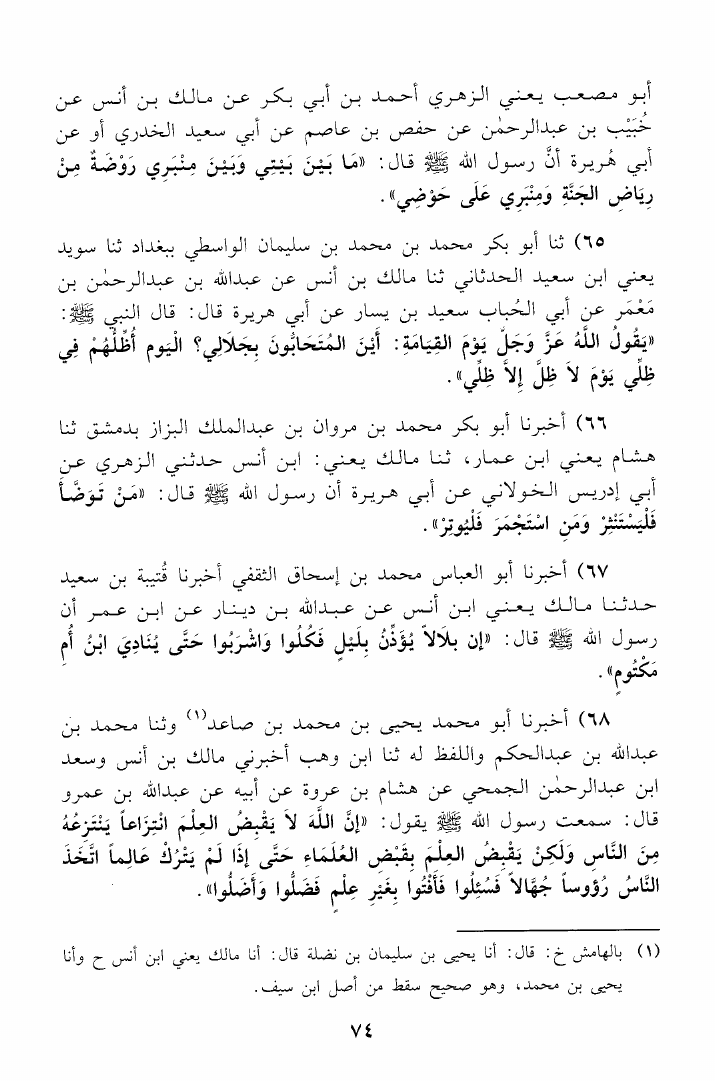 أبو مصعب يعني الزهري أحمد بن أبي بكر عن مالك بن أنس عن
خُبَيْب بن عبدالرحمٰن عن حفص بن عاصم عن أبي سعيد الخدري أو عن
أبي هُريرة أنَّ رسول الله ﷺ قال: «مَا بَيْنَ بَيْتِي وَبَيْنَ مِنْبَرِي رَوْضَةٌ مِنْ
رِيَاضِ الجَنَّةِ وَمِنْبَرِي عَلَى حَوْضِي».
٦٥) ثنا أبو بكر محمد بن محمد بن سليمان الواسطي ببغداد ثنا سويد
يعني ابن سعيد الحدثاني ثنا مالك بن أنس عن عبدالله بن عبدالرحمٰن بن
مَعْمَر عن أبي الحُباب سعيد بن يسار عن أبي هريرة قال: قال النبي ﷺ:
«يَقُولُ اللَّهُ عَزَّ وَجَلَّ يَوْمَ القِيَامَةِ: أَيْنَ المُتَحَابُّونَ بِجَلَالِي؟ الْيَوم أُظِلُّهُمْ فِي
ظِلِّي يَوْمَ لاَ ظِلَّ إِلاَّ ظِلِّي».
٦٦) أخبرنا أبو بكر محمد بن مروان بن عبدالملك البزاز بدمشق ثنا
هشام يعني ابن عمار، ثنا مالك يعني: ابن أنس حدثني الزهري عن
أبي إدريس الخولاني عن أبي هريرة أن رسول الله ﷺ قال: «مَنْ تَوَضَّأَ
فَلْيَسْتَنْثِرْ وَمَنِ اسْتَجْمَرَ فَلْيُوتِرْ».
٦٧) أخبرنا أبو العباس محمد بن إسحاق الثقفي أخبرنا قُتيبة بن سعيد
حدثنا مالك يعني ابن أنس عن عبدالله بن دينار عن ابن عمر أن
رسول الله ﷺ قال: «إن بلَالاً يُؤَذِّنُ بِلَيْلٍ فَكُلُوا وَاشْرَبُوا حَتَّى يُنَادِيَ ابْنُ أُمِ
مَكْتُومٍ».
٦٨) أخبرنا أبو محمد يحيى بن محمد بن صاعد(١) وثنا محمد بن
عبدالله بن عبدالحكم واللفظ له ثنا ابن وهب أخبرني مالك بن أنس وسعد
ابن عبدالرحمٰن الجمحي عن هشام بن عروة عن أبيه عن عبدالله بن عمرو
قال: سمعت رسول الله ﷺ يقول: «إنَّ اللَّهَ لاَ يَقْبِضُ العِلْمَ انْتِزَاعاً يَنْتَزِعُهُ
مِنَ النَّاسِ وَلَكِنْ يَقْبِضُ العِلْمَ بِقَبْضِ العُلَمَاءِ حَتَّى إِذَا لَمْ يَتْرُكْ عَالِماً اتَّخَذَ
النَّاسُ رُؤوساً جُهَّالاً فَسُئِلُوا فَأَفْتُوا بِغَيْرِ عِلْمٍ فَضَلُّوا وَأَضَلُّوا».
(١) بالهامش خ: قال: أنا يحيى بن سليمان بن نضلة قال: أنا مالك يعني ابن أنس ح وأنا
يحيى بن محمد، وهو صحيح سقط من أصل ابن سيف.
٧٤